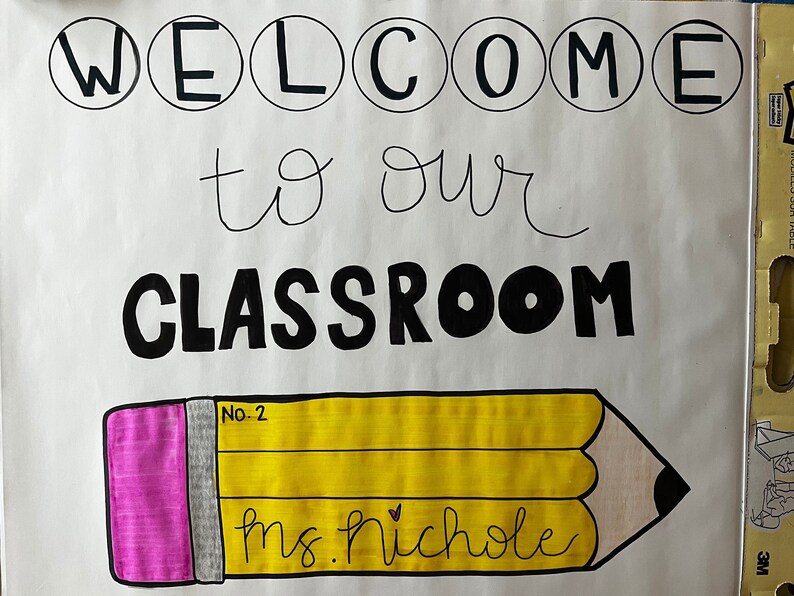 WELCOME
to our
CLASSROOM
No. 2
Ms. Nichole
3M